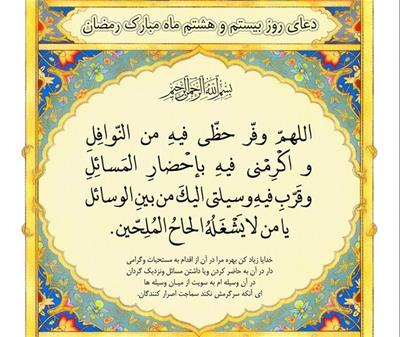 دعای روز بیستم و هشتم ماه مبارک رمضان
بسم الله الرحمن الرحیم
اللهمّ وفّر حظّی فیهِ من النّوافِلِ
و اکْرِمْنی فیهِ بإحْضارِ المَسائِلِ
وقَرّبِ فیهِ وسیلتی الیكَ من بینِ الوسائل
یا من لا یَشْغَلُهُ الحاحُ المُلِحّین.
خدایا زیاد کن بهره مرا در آن از اقدام به مستحبات وگرامی
دار در آن به حاضر کردن ویا داشتن مسائل ونزدیک گردان
در آن وسیله ام به سویت از میان وسیله ها
ای آنکه سرگرمش نکند سماجت اصرار کنندگان.